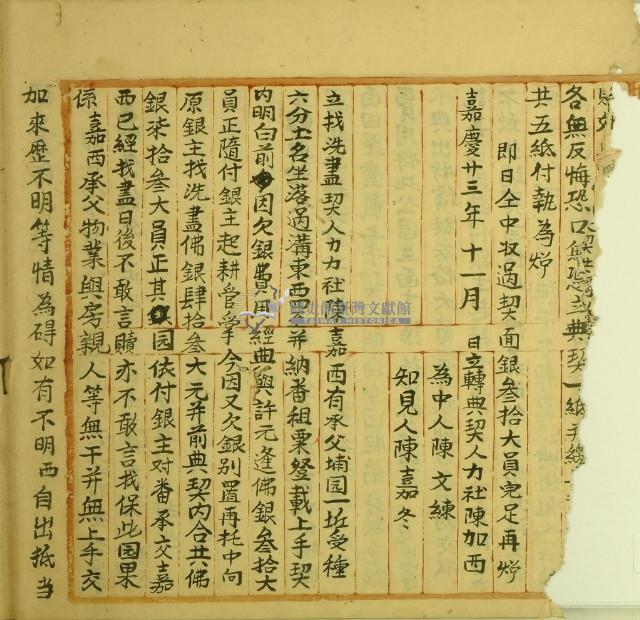 各無反悔恐口無憑立典契一紙
共五紙付執為炤
即日仝中收過契面銀叁拾大員完足再炤
嘉慶廿三年十一月 日立轉典契人力社陳加西
為中人陳文練
知見人陳嘉冬
立找洗盡契人力力社陳嘉西有承父埔园一坵受種
六分土名坐落過溝東西四至并納番租粟登載上手契
内明白前因欠銀費用經典與許元逢佛銀叁拾大
員正隨付銀主起耕管掌今因又欠銀別置再托中向
原銀主找洗盡佛銀肆拾叁大元并前典契内合共佛
銀柒拾叁大員正其园依付銀主对番承交嘉
西已經找盡日後不敢言贖亦不敢言找保此园果
係嘉西承父物業與房親人等無干并無上手交
加來歷不明等情為碍如有不明西自出抵当
國史館臺灣文獻館
TAIWAN HISTORICA